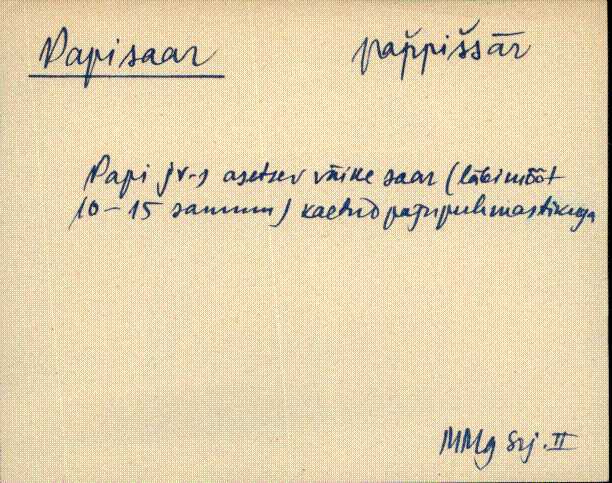 Papisaar pap̌pišsār
Papi jv-s asetsev väike saar (läbimõõt
10-15 sammu) kaetud pajupuhmastikuga
MMg Srj. II